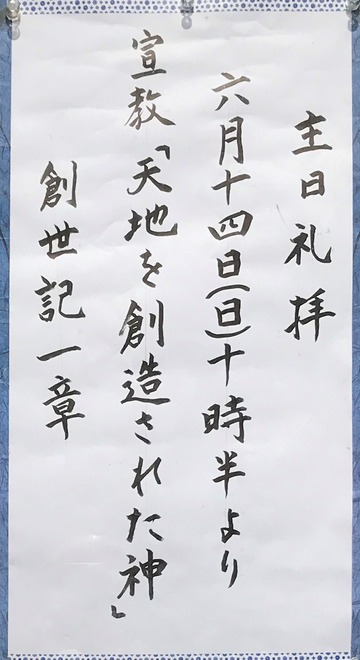 主日礼拝
六月十四日(日)十時半より
宣教「天地を創造された神」
創世記一章